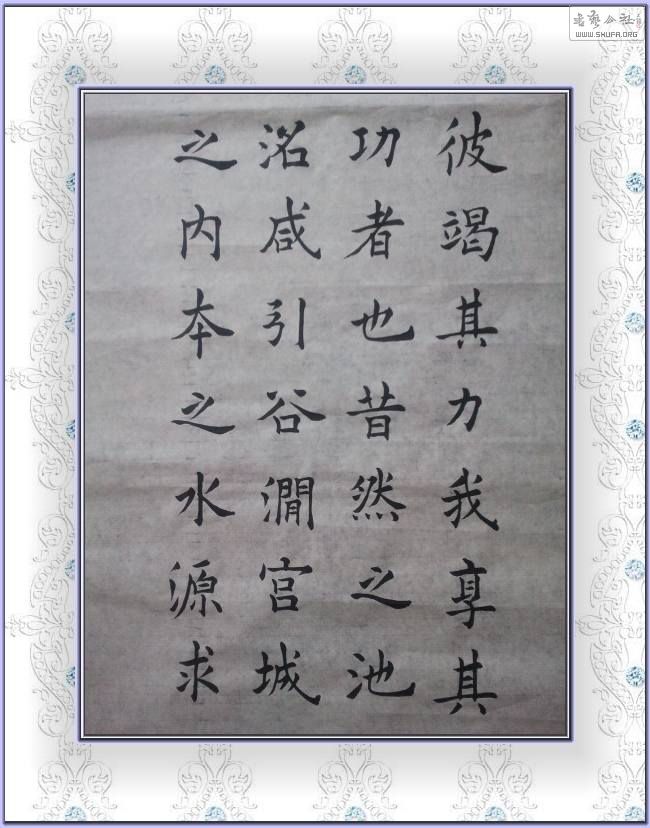 彼竭其力我享其
功者也昔然之池
沼咸引谷澗宫城
之内本乏水源求
书艺公社
WWW.SHUFA.ORG